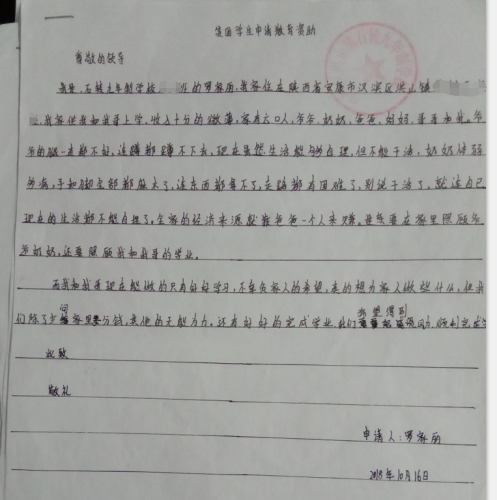 贫困学生申请教育资助
尊敬的领导
我是,石转九年制学校 的罗家丽,我家住在陕西省安康市汉滨区洪山镇
我家供我和我哥上学,收入十分的微薄,家有六口人,爷爷,奶奶,爸爸,妈妈,哥哥和我。爷
爷的腿一直都不好,连蹲都蹲不下去,现在虽然生活能够自理,但不能干活,奶奶体弱
多病,手和脚全部都麻木了,连东西都拿不了,走路都有困难了,别说干活了,就连自己
现在的生活都不能自理了,全家的经济来源就靠爸爸一个人来赚。妈妈要在家里照顾爷
爷奶奶,还要照顾我和我哥的学业。
而我和我哥现在能做的只有好好学习,不辜负家人的希望,真的想为家人做些什么,但我
们除了为家里分钱,其他的无能为力,还有好好的完成学业,我们希望得到 顺利完成学
此致
敬礼
申请人:罗家丽
2018年10月16日